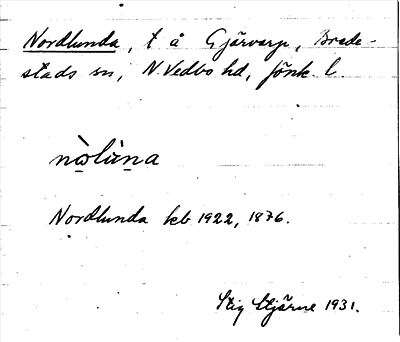 Nordlunda, t å Gjärvarp, Brede-
stads sn, N. Vedbo hd, Jönk. l.
nò̲lùn̲a
Nordlunda kb 1922, 1876.
Stig Stjärne 1931.